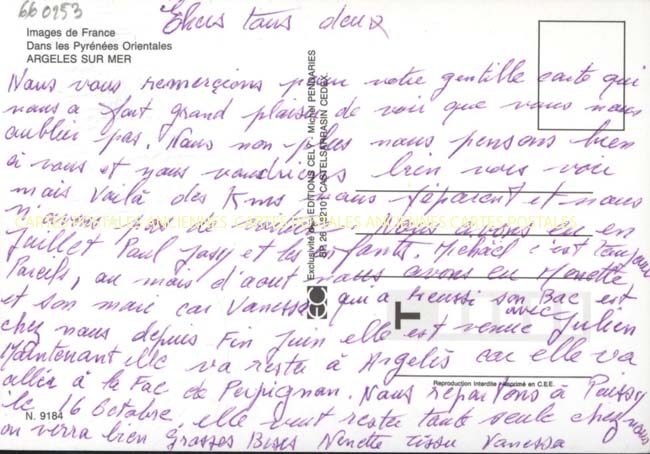 660953
Chers tous deux
Images de France
Dans les Pyrénées Orientales
ARGELES SUR MER
Nous vous remerçions pour votre gentille carte qui
nous a fait grand plaisir de voir que vous nous
oubliez pas. Nous non plus nous pensons bien
à vous et nous voudrions bien vous voir
mais voilà des Kms nous séparent et nous
Nous avons eu en
juillet Paul Josy et les enfants. Michaël c'est toujours
Pareils, au mois d'août nous avons eu Menette
et son mari car Vanessa qui a réussi son Bac est
chez nous depuis Fin Juin elle est venue avec Julien
Maintenant elle va rester à Argelès car elle va
aller à la Fac de Perpignan. Nous repartons à Poissy
le 16 Octobre, elle veut rester toute seule chez nous
on verra bien Grosses Bises Nenette Vanessa
CARTES POSTALES ANCIENNES CARTES POSTALES ANCIENNES CARTES POSTALES
Exclusivité des EDITIONS CELY - Michel PENDARIES
BP 26 - 82101 CASTELSARRASIN CEDEX
T
Reproduction Interdite / Imprimé en C.E.E.
N. 9184